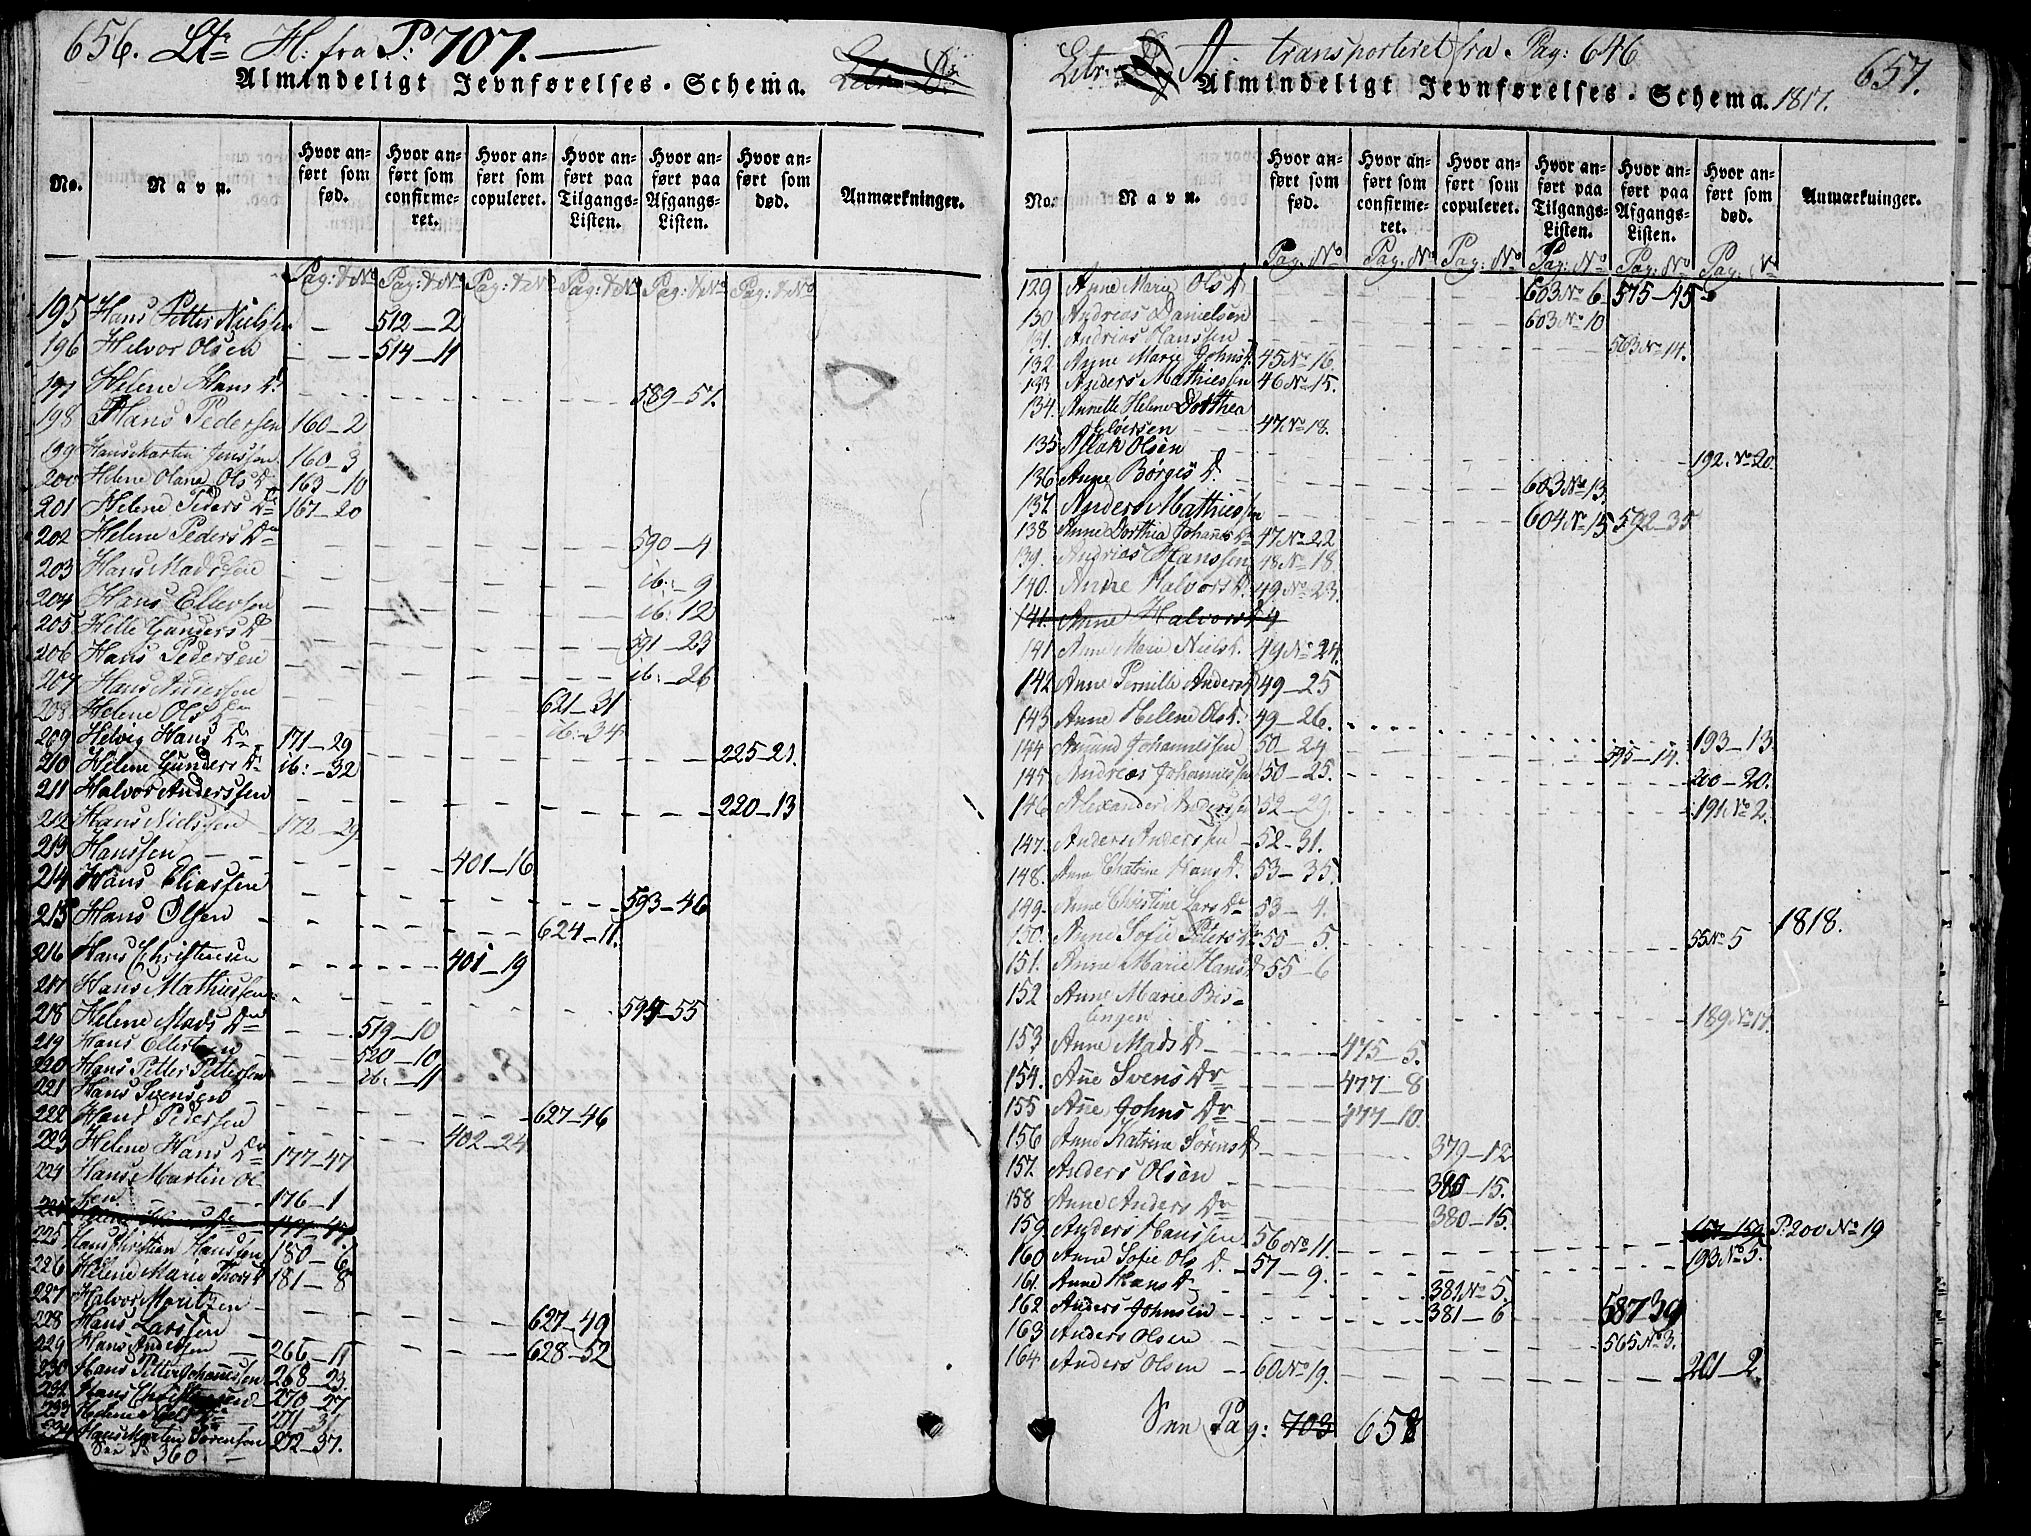 656. Ltr H: fra P: 707.
Litra D.
Almindeligt Jevnførelses-Schema.
No.
Navn.
Hvor anført som fød.
Hvor anført som confirmeret.
Hvor anført som copuleret.
Hvor anført paa Tilgangs-Listen.
Hvor anført paa Afgangs-Listen.
Hvor anført som død.
Anmærkninger.
Pag: & No Pag: & No Pag: & No Pag: & No Pag: & No Pag: & No
195 Hans Petter Nielssen 512-2
196 Helvor Olsen 514-11
197 Helene Hans D. 589-57.
198 Hans Pedersen 160-2
199 Hans Martin Jenssen 160-3
200 Helene Olana Ols D 163-10
201 Helene Peders Dr 167-20
202 Helene Peders Dr 590-4
203 Hans Madssen ib:-9
204 Hans Ellersen ib: 12
205 Helle Gunders D 591-23
206 Hans Pedersen ib:-26
207 Hans Andersen 621-31
208 Helene Ols ib:-34
209 Helvig Hans Dr 171-29 225-21.
210 Helene Gunders Dr ib:-32
211 Halvor Anderssen 220-13
212 Hans Nielssen 172-29
213 Hanssen 401-16
214 Hans Eliassen 593-46
215 Hans Olsen 624-11.
216 Hans Christensen 401-19
217 Hans Mathiessen 594-55
218 Helene Mads Dr 519-10
219 Hans Ellersen 520-10
220 Hans Petter Pettersen ib:-11
221 Hans Svensen 627-46
222 Hans Pedersen 402-24
223 Helene Hans Dr 177-47
224 Hans Martin Ol-
sen 176-1
225 Hans Christian Hanssen 180-6
226 Helene Marie Thors D 181-8
227 Halvor Moritzen 627-49
228 Hans Larssen 628-52
229 Hans Andersen 266-11
230 Hans Petter Johannessen 268-23.
232 Hans Christensen 270-27
233 Helene Niels 271-31
234 Hans Martin Sørensen 272-37.
See P. 360.
Litr: A transporteret fra Pag: 646
657.
Almindeligt Jevnførelses-Schema. 1817.
No.
Navn.
Hvor anført som fød.
Hvor anført som confirmeret.
Hvor anført som copuleret.
Hvor anført paa Tilgangs-Listen.
Hvor anført paa Afgangs-Listen.
Hvor anført som død.
Anmærkninger.
Pag: No Pag: No Pag: No Pag: No Pag: No Pag: No
129 Anne Marie Ols D 603 No 6 575-45
130 Andreas Danielsen 603 No 10
131. Andreas Hanssen 563 No 14.
132 Anne Marie Johns D. 45 No 16
133 Anders Mathiessen 46 No 15.
134. Annette Helene Dorthea
47. No 18.
135 Aslak Olsen 192. No 20.
136 Anne Børges D. 603 No 13
137 Anders Mathiessen 604 No 15 592-35
138 Anne Dorthea Johannes Dr 47 No 22
139. Andreas Hanssen 48 No 18
140. Anne Halvors D. 49 No 23.
141. Anne Halvors D
141 Anne Marie Niels D. 49 No 24.
142 Anne Pernille Anders D 49-25
143 Anne Helene Ols D. 49-26. 193-13.
144 Amund Johannessen 50-24 595-14.
145 Andreas Johannessen 50-25. 200-20.
146 Alexander Anderssen 52-29 191 No 2.
147. Anders Anderssen 52-31.
148. Ane Chatrine Hans D. 53-35.
149 Anne Christine Lars Dr 53-4.
150. Anne Sofie Peters Dr 55-5. 55 No 5 1818.
151. Anne Marie Hans D 55-6
152 Anne Marie Bis-
lingen 189 No 17.
153 Anne Mads D 475-5.
154. Ane Svens Dr 477-8
155 Ane Johns Dr 477-10.
156 Anne Katrine Sørens D 379-12
157. Anders Olsen 380-15.
158 Anne Anders Dr 380-15.
159 Anders Hanssen 56 No 11. P: 200 No 19
160 Anne Sofie Ols D. 57-9. 193 No 5.
161. Anne Hans D 381 No 5.
162 Anders Johnsen 381-6 587 39
163 Anders Olsen 565 No 3.
164 Anders Olsen 60 No 19. 201-2.
See Pag: 703 658